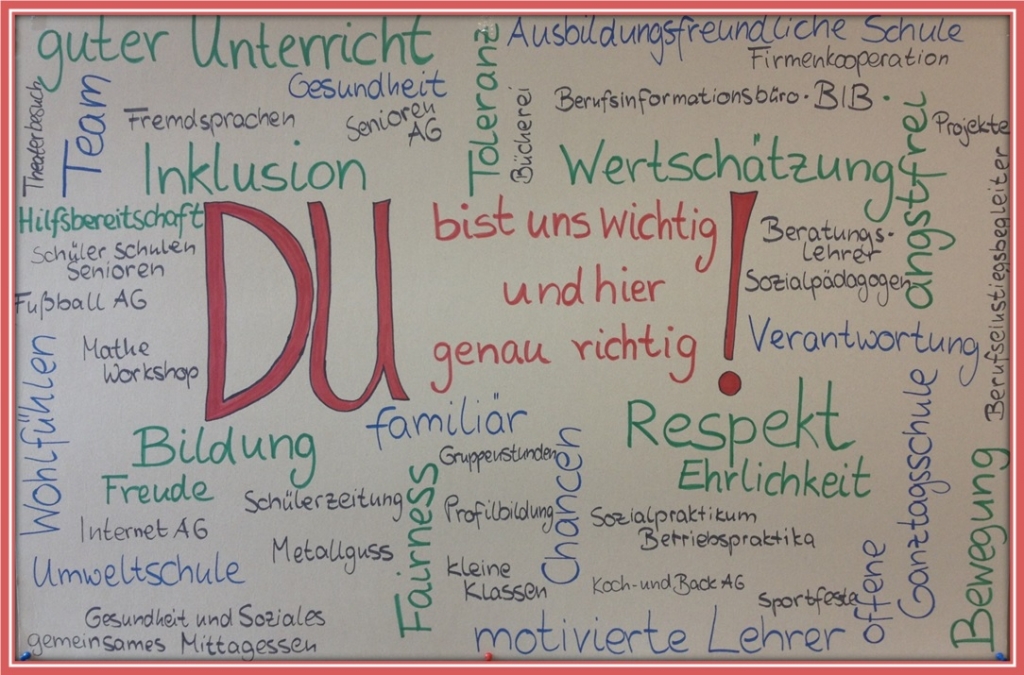 guter Unterricht
Toleranz
Ausbildungsfreundliche Schule
Firmenkooperation
Theaterbesuch
Team
Gesundheit
Fremdsprachen
Senioren
AG
Bücherei
Berufsinformationsbüro · BIB ·
angstfrei
Projekte
Inklusion
Wertschätzung
Berufseinstiegsbegleiter
Hilfsbereitschaft
Schüler schulen
Senioren
Fußball AG
Mathe
Workshop
DU
bist uns wichtig
und hier
genau richtig
!
Beratungs-
lehrer
Sozialpädagogen
Verantwortung
Wohlfühlen
Bildung
Freude
familiär
Respekt
Ehrlichkeit
Gruppenstunden
Chancen
Fairness
Schülerzeitung
Profilbildung
Sozialpraktikum
Betriebspraktika
Internet AG
Metallguss
Umweltschule
kleine
Klassen
Koch- und Back AG
Sportfeste
offene
Ganztagsschule
Bewegung
Gesundheit und Soziales
gemeinsames Mittagessen
motivierte Lehrer